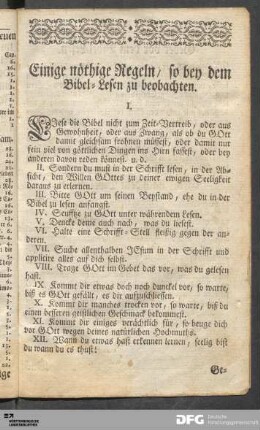 Einige nöthige Regeln/ so bey dem
Bibel-Lesen zu beobachten.
I.
LEse die Bibel nicht zum Zeit-Vertreib, oder aus
Gewohnheit, oder aus Zwang, als ob du GOtt
damit gleichsam frohnen müssest, oder damit nur
sein viel von göttlichen Dingen ins Hirn fassest, oder bey
anderen davon reden könnest. u. d.
II. Sondern du must in der Schrifft lesen, in der Ab-
sicht, den Willen GOttes zu deiner ewigen Seeligkeit
daraus zu erlernen.
III. Bitte GOtt um seinen Beystand, ehe du in der
Bibel zu lesen anfangst.
IV. Seuftze zu GOtt unter währendem Lesen.
V. Dencke deme auch nach, was du lesest.
VI. Halte eine Schrifft-Stell fleißig gegen der an-
deren.
VII. Suche allenthalben JEsum in der Schrifft und
applicire alles auf dich selbst.
VIII. Trage GOtt im Gebet das vor, was du gelesen
hast.
IX. Kommt dir etwas doch noch dunckel vor, so warte,
biß es GOtt gefällt, es dir aufzuschliessen.
X. Kommt dir manches trocken vor, so warte, biß du
einen besseren geistlichen Geschmack bekommest.
XI. Kommt dir einiges verächtlich für, so beuge dich
vor GOtt wegen deines natürlichen Hochmuths.
XII. Wann du etwas hast erkennen lernen, seelig bist
du wann du es thust!
Ge-
DFG
Deutsche
Forschungsgemeinschaft